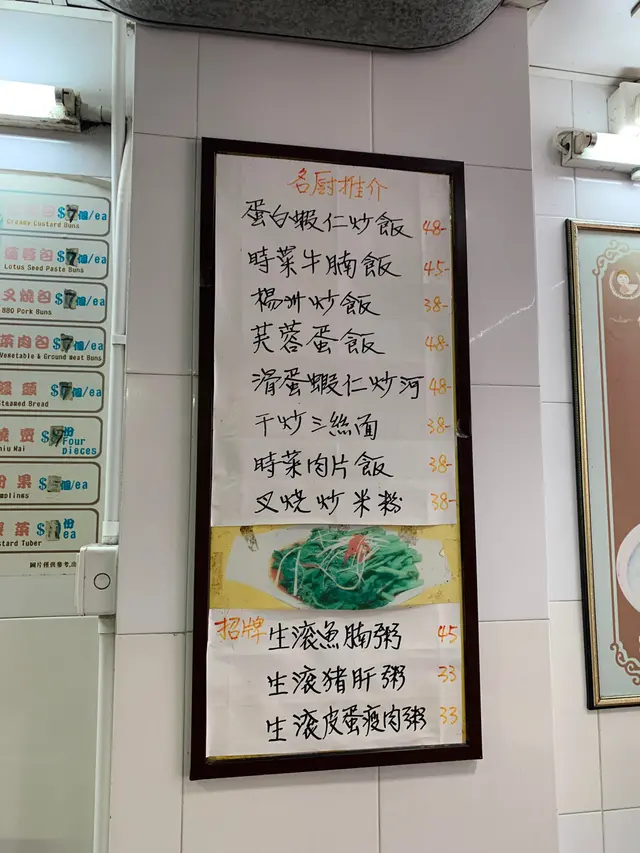 $7個/ea
Creamy Custard Buns
$7個/ea
Lotus Seed Paste Buns
叉燒包 $7個/ea
BBQ Pork Buns
菜肉包 $7個/ea
Vegetable & Ground meat Buns
$7個/ea
Steamed Bread
燒賣 $ 份 Four pieces
Shiu Mai
粉果 $ 個/ea
Dumplings
份 ea
Custard Tuber
圖片僅供參考
名厨推介
蛋白蝦仁炒飯 48-
時菜牛腩飯 45-
楊洲炒飯 38-
芙蓉蛋飯 48-
滑蛋蝦仁炒河 48-
干炒三絲面 38-
時菜肉片飯 38-
叉烧炒米粉 38-
招牌 生滚魚腩粥 45
生滚猪肝粥 33
生滚皮蛋瘦肉粥 33